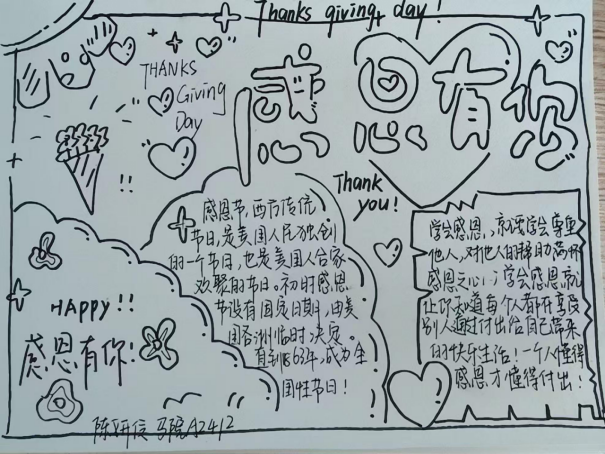 Thanks giving day!
THANKS
Giving
Day
感恩有您
Thank
you!
感恩节,西方传统
节日,是美国人民独创
的一个节日,也是美国人合家
欢聚的节日。初时感恩
节没有固定日期,由美
国各洲临时决定。
直到1863年,成为全
国性节日!
学会感恩,就要学会尊重
他人,对他人的帮助常怀
感恩之心;学会感恩,就
让你知道每个人都在享受
别人通过付出给自己带来
的快乐生活!一个人懂得
感恩才懂得付出!
HAPPY!!
感恩有你!
陈妍 A2412